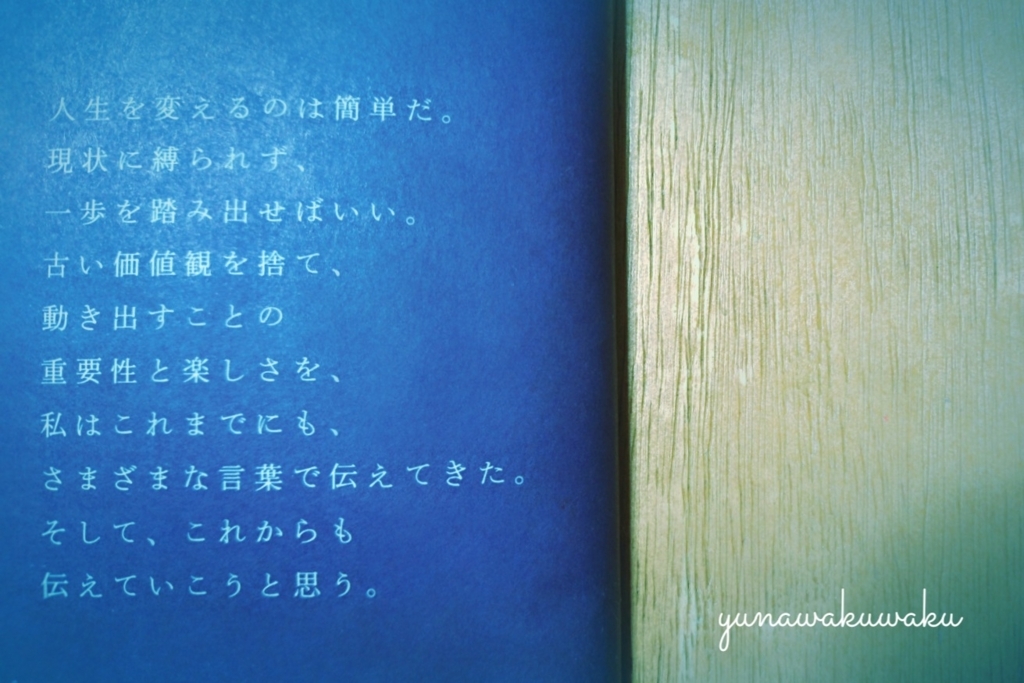 人生を変えるのは簡単だ。
現状に縛られず、
一歩を踏み出せばいい。
古い価値観を捨て、
動き出すことの
重要性と楽しさを、
私はこれまでにも、
さまざまな言葉で伝えてきた。
そして、これからも
伝えていこうと思う。
yunawakuwaku